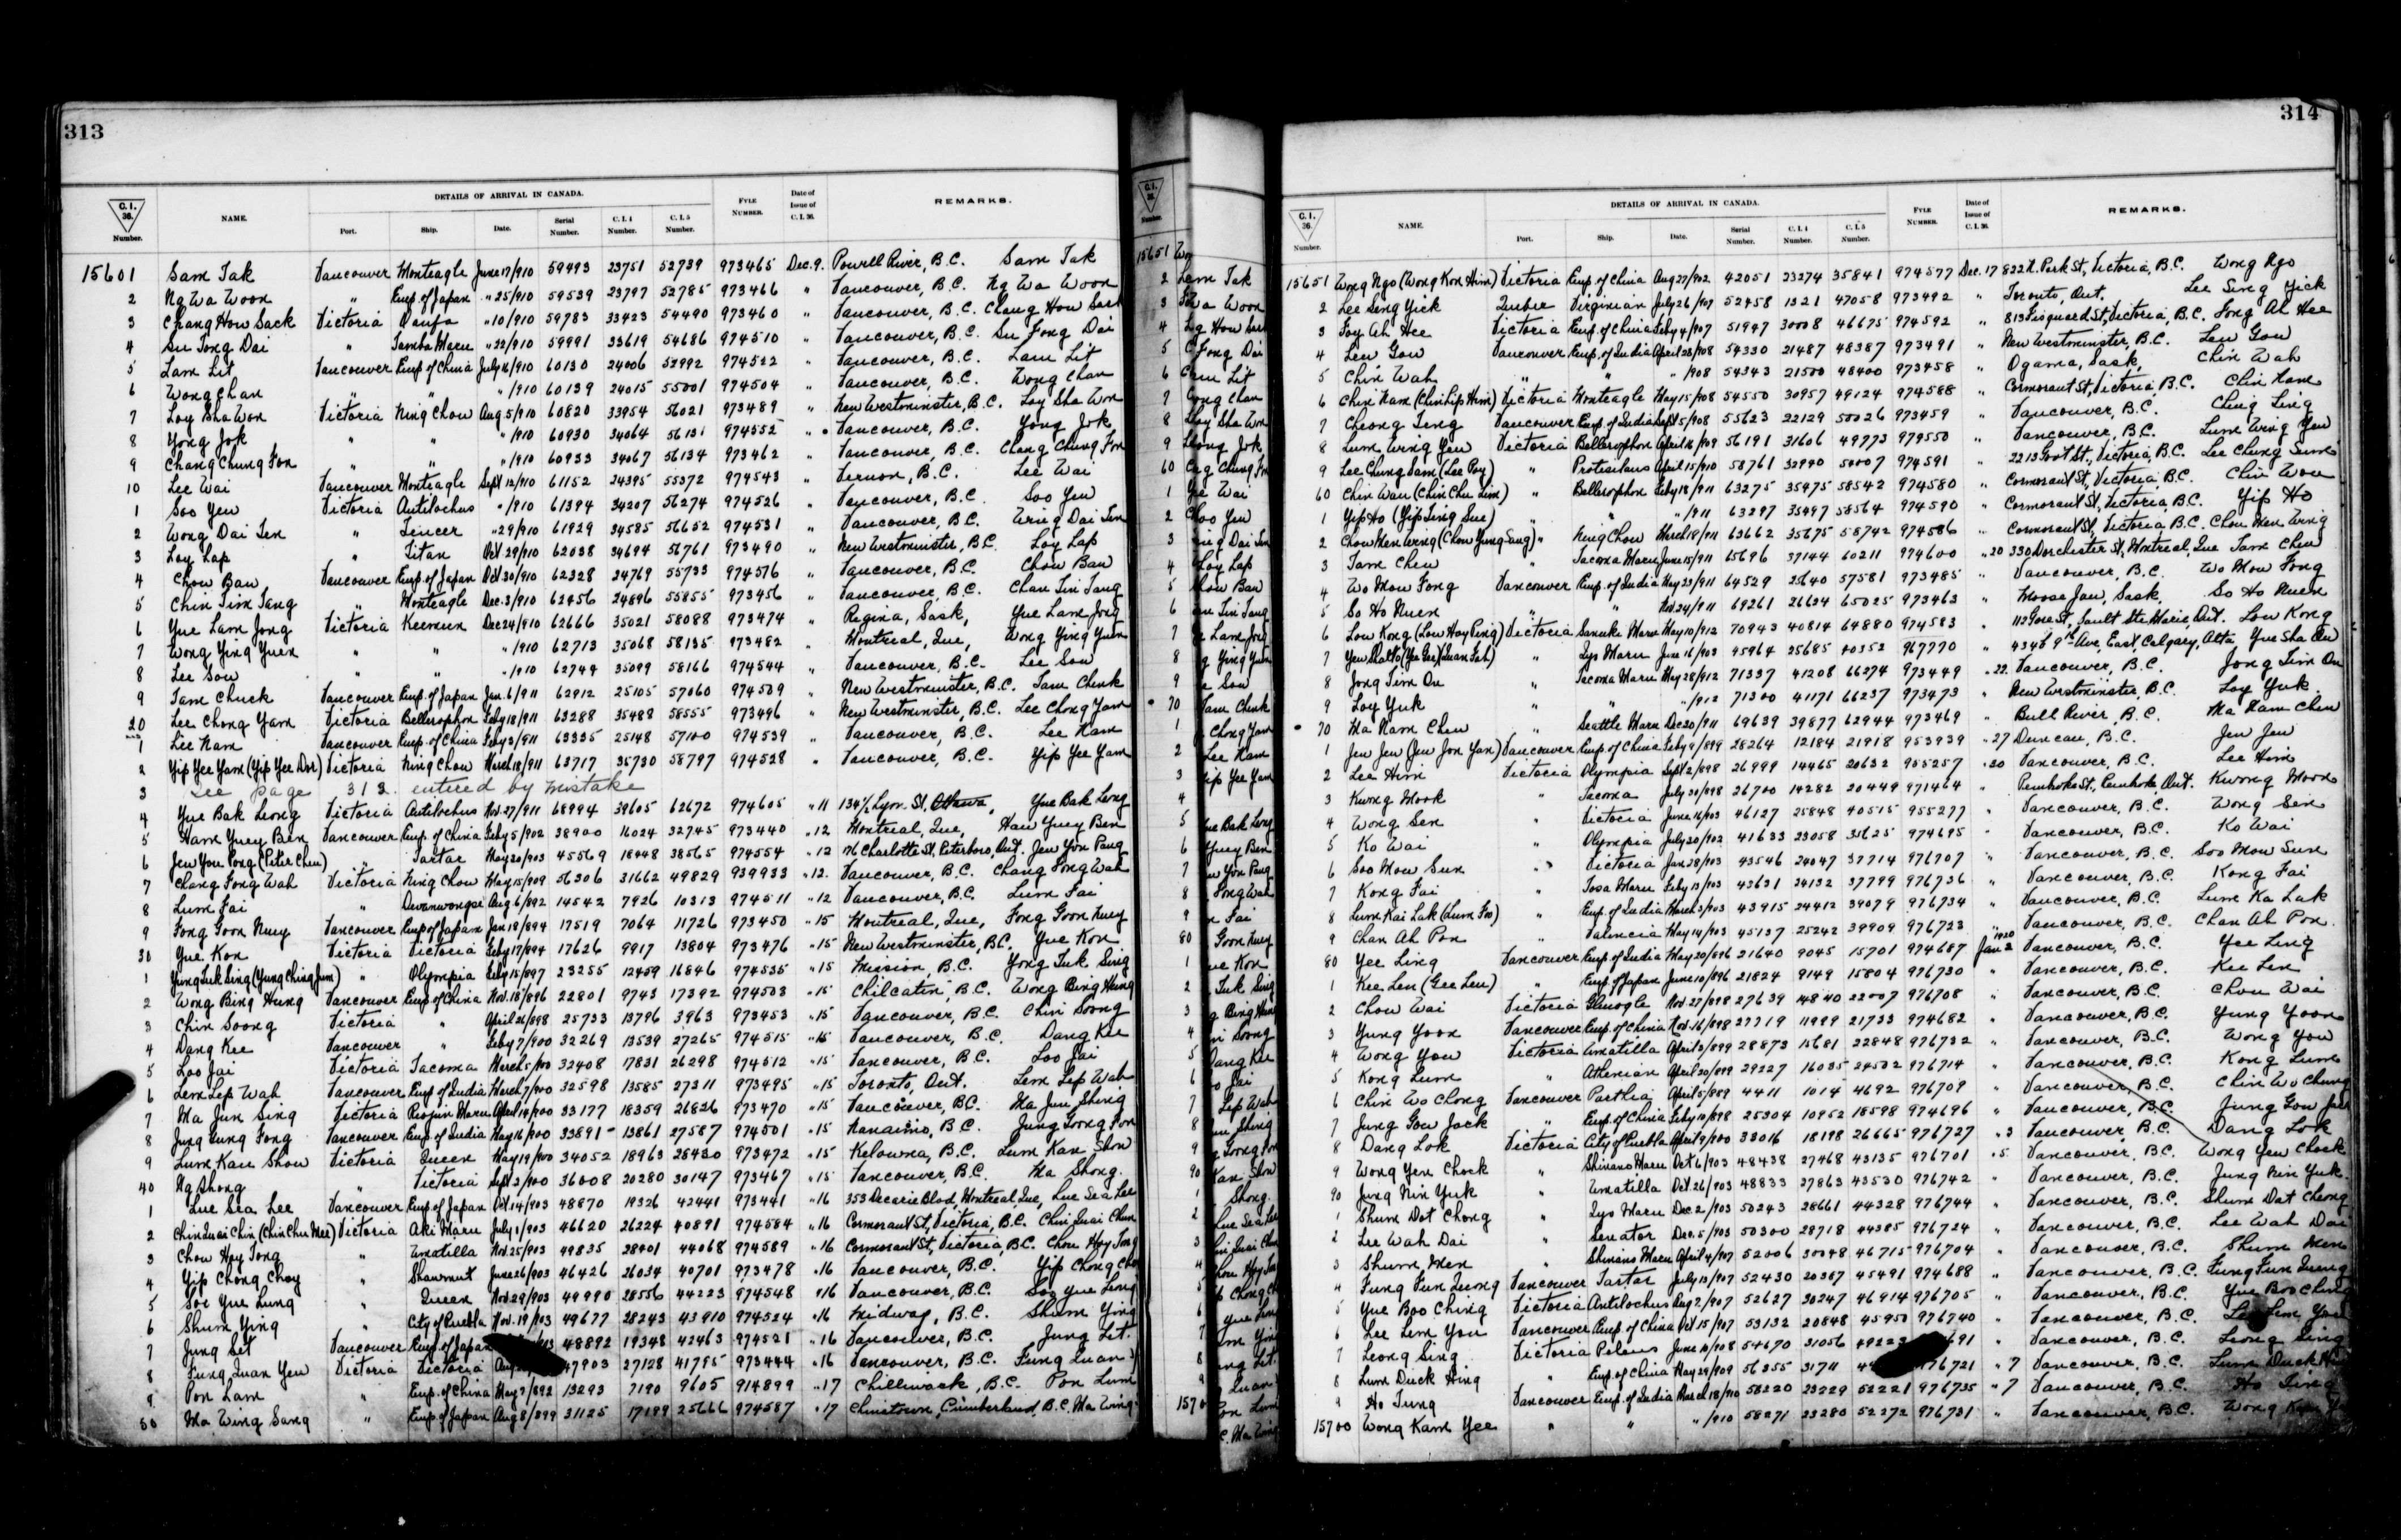 313
DETAILS OF ARRIVAL IN CANADA.
C. I. 36. Number. NAME. Port. Ship. Date. Serial Number. C. I. 4 Number. C. I. 5 Number. FYLE NUMBER. Date of Issue of C. I. 36. REMARKS.
15601 Sam Tak Vancouver Monteagle June 17/910 59493 23751 52739 973465 Dec. 9. Powell River, B.C. Sam Tak
2 Ng Wa Woon " Emp. of Japan " 25/910 59539 23797 52785 973466 " Vancouver, B.C. Ng Wa Woon
3 Chang How Sack Victoria " 10/910 59783 33423 54490 973460 " Vancouver, B.C. Chang How
4 Su Fong Dai " Tamba Maru " 22/910 59991 33619 54686 974510 " Vancouver, B.C. Su Fong Dai
5 Lam Lit Vancouver Emp. of China July 16/910 60130 24006 53992 974522 " Vancouver, B.C. Lam Lit
6 Wong Chan " /910 60139 24015 55001 974504 " Vancouver, B.C. Wong Chan
7 Loy Sha Won Victoria Ning Chow Aug 5/910 60820 33954 56021 973489 " New Westminster, B.C. Loy Sha Won
8 Yong Jok " " " /910 60930 34064 56131 974552 " Vancouver, B.C. Yong Jok
9 Chang Chung Fon " " " /910 60933 34067 56134 973462 " Vancouver, B.C. Chang Chung Fon
10 Lee Wai Vancouver Monteagle Sept 12/910 61152 24395 55372 974543 " Vernon, B.C. Lee Wai
1 Soo Yen Victoria Antilochus " /910 61394 34207 56274 974526 " Vancouver, B.C. Soo Yen
2 Wong Dai Jen " Teucer " 29/910 61929 34585 56652 974531 " Vancouver, B.C. Wong Dai Jen
3 Loy Lap " Titan Oct 29/910 62038 34694 56761 973490 " New Westminster, B.C. Loy Lap
4 Chow Ban Vancouver Emp. of Japan Oct 30/910 62328 24769 55733 974576 " Vancouver, B.C. Chow Ban
5 Chin Tim Tang " Monteagle Dec. 3/910 62456 24896 55855 973456 " Vancouver, B.C. Chan Tim Tang
6 Yue Lam Jong Victoria Keemun Dec 24/910 62666 35021 58088 973474 " Regina, Sask, Yue Lam Jong
7 Wong Ying Yuen " " " /910 62713 35068 58135 973482 " Montreal, Que, Wong Ying Yuen
8 Lee Sow " " " /910 62744 35099 58166 974544 " Vancouver, B.C. Lee Sow
9 Tam Chuck Vancouver Emp. of Japan Jan. 6/911 62912 25105 57060 974509 " New Westminster, B.C. Tam Chuck
20 Lee Chong Yam Victoria Bellerophon Feby 18/911 63288 35488 58555 973496 " New Westminster, B.C. Lee Chong Yam
1 Lee Nam Vancouver Emp. of China Feby 3/911 63335 25148 57100 974539 " Vancouver, B.C. Lee Nam
2 Yip Yee Yam (Yip Yee Dor) Victoria Ning Chow March 18/911 63717 35730 58797 974528 " Vancouver, B.C. Yip Yee Yam
3 See page 312. entered by mistake
4 Yue Bak Leong Victoria Antilochus Nov. 27/911 68994 39605 62672 974605 " 11 134½ Lyon St, Ottawa, Yue Bak Leong
5 Ham Yuey Ben Vancouver Emp. of China Feby 5/902 38900 16024 32745 973440 " 12 Montreal, Que, Ham Yuey Ben
6 Jew You Pong (Peter Chew) " Tartar May 20/903 45569 18448 38565 974554 " 12 76 Charlotte St, Peterboro, Ont. Jew You Pang
7 Chang Fong Wah Victoria Ning Chow May 15/909 56306 31662 49829 939933 " 12. Vancouver, B.C. Chang Fong Wah
8 Lum Fai " Aug 6/892 14542 7926 10313 974511 " 12 Vancouver, B.C. Lum Fai
9 Fong Goon Nuey Vancouver Emp of Japan Jan 18/894 17519 7064 11726 973450 " 15 Montreal, Que, Fong Goon Nuey
30 Yue Kon Victoria Victoria Feby 17/894 17626 9917 13804 973476 " 15 New Westminster, B.C. Yue Kon
1 Yung Tuk Sing (Yung Ching Jum) " Olympia Feby 15/897 23255 12459 16846 974535 " 15 Mission, B.C. Yong Tuk Sing
2 Wong Bing Hung Vancouver Emp of China Nov. 18/896 22801 9743 17392 974503 " 15 Chilcatin, B.C. Wong Bing Hung
3 Chin Soong Victoria " April 26/898 25733 13796 3963 973453 " 15 Vancouver, B.C. Chin Soong
4 Dang Kee Vancouver " Feby 7/900 32269 13539 27265 974515 " 15 Vancouver, B.C. Dang Kee
5 Loo Jai Victoria Tacoma March 5/900 32408 17831 26298 974512 " 15 Vancouver, B.C. Loo Jai
6 Lem Lep Wah Vancouver Emp. of India March 7/900 32598 13585 27311 973495 " 15 Toronto, Ont. Lem Lep Wah
7 Ma Jun Sing Victoria Riojun Maru April 14/900 33177 18359 26826 973470 " 15 Vancouver, BC. Ma Jun Shing
8 Jung Gung Fong Vancouver Emp. of India May 16/900 33891 13861 27587 974501 " 15 Nanaimo, B.C. Jung Goong Fon
9 Lum Kan Show Victoria Queen May 19/900 34052 18963 28430 973472 " 15 Kelowna, B.C. Lum Kan Show
40 Ng Shong " Victoria Sept 2/900 36008 20280 30147 973467 " 15 Vancouver, B.C. Ma Shong.
1 Lue Sea Lee Vancouver Emp. of Japan Oct. 14/903 48870 19326 42441 973441 " 16 353 Decarie Blvd, Montreal, Que, Lue Sea Lee
2 Chin Quai Chin (Chin Chu Mee) Victoria Aki Maru July 1/903 46620 26224 40891 974584 " 16 Cormorant St, Victoria, B.C. Chin Quai Chun
3 Chow Hoy Tong " Umatilla Nov. 25/903 49835 28401 44068 974589 " 16 Cormorant St, Victoria, BC. Chow Hoy Tong
4 Yip Chong Choy " Shawmut June 26/903 46426 26034 40701 973478 " 16 Vancouver, B.C. Yip Chong Cho
5 Soe Yue Lung " Queen Nov. 29/903 49990 28556 44223 974548 " 16 Vancouver, B.C. Soo Yue Leong
6 Shum Ying " City of Puebla Nov. 19/903 49677 28243 43910 974524 " 16 Midway, B.C. Shum Ying
7 Jung Set Vancouver Emp. of Japan 48892 19348 42463 974521 " 16 Vancouver, B.C. Jung Lit.
8 Fung Quan Yeu Victoria Victoria 47903 27128 41795 973444 " 16 Vancouver, B.C. Fung Quan
9 Pon Lam " Emp. of China May 7/892 13293 7190 9605 914899 " 17 Chilliwack, B.C. Pon Lum
50 Ma Wing Sang " Emp. of Japan Aug 8/899 31125 17199 25666 974587 " 17 Chinatown, Cumberland, B.C. Ma Wing
314
DETAILS OF ARRIVAL IN CANADA.
C. I. 36. Number. NAME. Port. Ship. Date. Serial Number. C. I. 4 Number. C. I. 5 Number. FYLE NUMBER. Date of Issue of C. I. 36. REMARKS.
15651 Wong Ngo (Wong Kon Him) Victoria Emp. of China Aug 27/902 42051 23274 35841 974577 Dec. 17 822 N. Park St, Victoria, B.C. Wong Ngo
2 Lee Seng Yick Quebec Virginian July 26/907 52458 1321 47058 973492 " Toronto, Ont. Lee Sing Yick
3 Foy Ah Hee Victoria Emp. of China Feby 4/907 51947 30008 46675 974592 " 813 Fisguard St, Victoria, B.C. Fong Ah Hee
4 Lew Gow Vancouver Emp. of India April 28/908 54330 21487 48387 973491 " New Westminster, B.C. Lew Gow
5 Chin Wah " " " /908 54343 21500 48400 973458 " Ogama, Sask, Chin Wah
6 Chin Nam (Chin Lip Him) Victoria Monteagle May 15/908 54550 30957 49124 974588 " Cormorant St, Victoria, B.C. Chin Nam
7 Cheong Ting Vancouver Emp. of India Sept 5/908 55623 22129 50026 973459 " Vancouver, B.C. Ching Ling
8 Lum Wing Yeu Victoria Bellerophon April 18/909 56191 31606 49773 974550 " Vancouver, B.C. Lum Wing Yeu
9 Lee Chung Sam (Lee Poy) " Protesilaus April 15/910 58761 32940 54007 974591 " 2213 Goot St., Victoria, B.C. Lee Chung Sum
60 Chin Wau (Chin Chu Lim) " Bellerophon Feby 18/911 63275 35475 58542 974580 " Cormorant St, Victoria, B.C. Chin Wou
1 Yip Ho (Yip Ting Sue) " " " /911 63297 35497 58564 974590 " Cormorant St, Victoria, B.C. Yip Ho
2 Chow Men Wing (Chow Yung Sang) " Ning Chow March 18/911 63662 35675 58742 974586 " Cormorant St, Victoria, B.C. Chow Men Wing
3 Tam Chew Tacoma Maru June 15/911 65696 37144 60211 974600 " 20 330 Dorchester St, Montreal, Que Tam Chew
4 Wo Mow Fong Vancouver Emp. of India May 23/911 64529 25640 57581 973485 " Vancouver, B.C. Wo Mow Fong
5 So Ho Nuen " " Nov 24/911 69261 26634 65025 973463 " Moose Jaw, Sask. So Ho Nuen
6 Low Kong (Low Hay Ping) Victoria Sanuki Maru May 10/912 70943 40814 64880 974583 " 112 Gore St, Sault Ste Marie, Ont. Low Kong
7 Yew Shatto (Yee Gee) (Quan Fah) " Iyo Maru June 16/903 45964 25685 40352 967770 " 434 b 9th Ave, East, Calgary, Alta Yue Sha
8 Jong Tim On " Tacoma Maru May 28/912 71337 41208 66274 973449 " 22. Vancouver, B.C. Jong Tim On
9 Loy Yuk " " " /912 71300 41171 66237 973473 " New Westminster, B.C. Loy Yuk
70 Ma Nam Chew " Seattle Maru Dec 20/911 69639 39877 62944 973469 " Bull River, B.C. Ma Nam Chew
1 Jew Jew (Jew Jon Yan) Vancouver Emp. of China Feby 9/899 28264 12184 21918 953939 " 27 Duncan, B.C. Jew Jew
2 Lee Him Victoria Olympia Sept 2/898 26999 14465 20632 955257 " 30 Vancouver, B.C. Lee Him
3 Kwong Mook " Tacoma July 30/898 26700 14282 20449 971464 " Pembroke St, Pembroke, Ont. Kwong Mook
4 Wong Sen " Victoria June 16/903 46127 25848 40515 955277 " Vancouver, B.C. Wong Sen
5 Ko Wai " Olympia July 20/902 41633 23058 35625 974695 " Vancouver, B.C. Ko Wai
6 Soo Mow Sun " Victoria Jan 28/903 43546 24047 37714 976707 " Vancouver, B.C. Soo Mow Sun
7 Kong Fai " Tosa Maru Feby 13/903 43631 24132 37799 976736 " Vancouver, B.C. Kong Fai
8 Lum Kai Lak (Lum Foo) " Emp. of India March 3/903 43915 24412 39079 976734 " Vancouver, B.C. Lum Ka Lak
9 Chan Ah Pon " Valencia May 14/903 45137 25242 39909 976723 " Vancouver, B.C. Chan Ah Pon.
80 Yee Ling Vancouver Emp. of India May 20/896 21640 9045 15701 974687 1920 Jan 2 Vancouver, B.C. Yee Ling
1 Kee Len (Gee Leu) " Emp. of Japan June 10/896 21824 9149 15804 976730 " Vancouver, B.C. Kee Len
2 Chow Wai Victoria Glenogle Nov. 27/898 27639 14840 22007 976708 " Vancouver, B.C. Chow Wai
3 Yung Yoon Vancouver Emp. of China Nov. 16/898 27719 11999 21733 974682 " Vancouver, B.C. Yung Yoon
4 Wong You Victoria Umatilla April 3/899 28873 15681 22848 976732 " Vancouver, B.C. Wong You
5 Kong Lum " Athenian April 20/899 29227 16035 24502 976714 " Vancouver, B.C. Kong Lum
6 Chin Wo Chong Vancouver Parthia April 5/889 4411 1014 4692 976709 " Vancouver, B.C. Chin Wo Chung
7 Jung Gow Jack " Emp. of China Feby 10/898 25304 10952 18598 974696 " Vancouver, B.C. Jung Gow Jack
8 Dang Lok Victoria City of Puebla April 9/900 33016 18198 26665 976727 " 3 Vancouver, B.C. Dang Lok
9 Wong Yen Chock " Shinano Maru Oct 6/903 48438 27468 43135 976701 " 5. Vancouver, B.C. Wong Yew Chock
90 Jung Nin Yuk " Umatilla Oct. 26/903 48833 27863 43530 976742 " Vancouver, B.C. Jung Nin Yuk
1 Shum Dot Chong " Iyo Maru Dec. 2/903 50243 28661 44328 976744 " Vancouver, B.C. Shum Dat Chong
2 Lee Wah Dai " Senator Dec. 5/903 50300 28718 44385 976724 " Vancouver, B.C. Lee Wah Dai
3 Shum Men " Shinano Maru April 4/907 52006 30048 46715 976704 " Vancouver, B.C. Shum Men
4 Fung Fun Leung Vancouver Tartar July 13/907 52430 20387 45491 974688 " Vancouver, B.C. Fung Fun Leung
5 Yue Boo Ching Victoria Antilochus Aug 2/907 52627 30247 46914 976705 " Vancouver, B.C. Yue Boo Ching
6 Lee Lem You Vancouver Emp. of China Oct 15/907 53132 20848 45950 976740 " Vancouver, B.C. Lee Lem You
7 Leong Sing Victoria Peleus June 10/908 54670 31056 49223 " Vancouver, B.C. Leong Sing
8 Lum Duck Hing " Emp. of China May 29/909 56355 31711 976721 " 7 Vancouver, B.C. Lum Duck
9 Ho Tung Vancouver Emp. of India March 18/910 58220 23229 52221 976735 " 7 Vancouver, B.C. Ho Ting
15700 Wong Kam Yee " " " /910 58271 23280 52272 976731 " Vancouver, B.C. Wong Kam